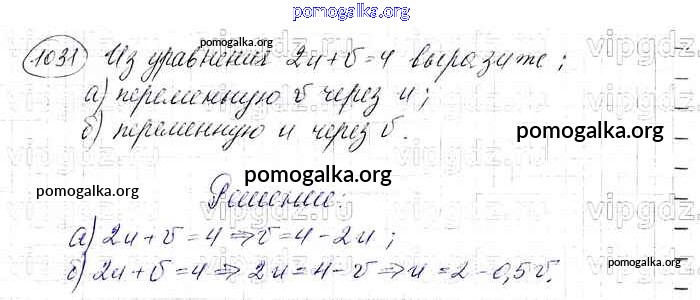 pomogalka.org
1031 Из уравнения 2u+v=4 выразите;
pomogalka.org
а) переменную v через u;
б) переменную u через v.
pomogalka.org
pomogalka.org
Решение:
а) 2u+v=4⇒v=4-2u;
pomogalka.org
б) 2u+v=4⇒2u=4-v⇒u=2-0,5v.
pomogalka.org
pomogalka.org